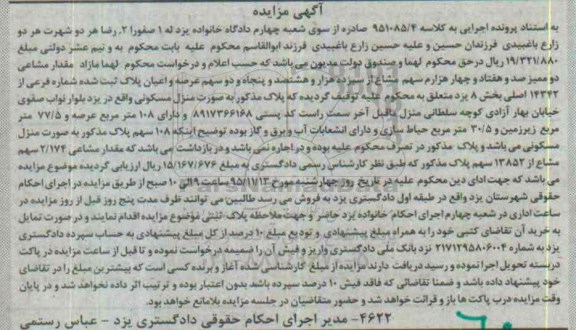 آگهی مزایده
به استناد پرونده اجرایی به کلاسه 951085/4 صادره از سوی شعبه چهارم دادگاه خانواده یزد له 1 صفورا 2. رضا هر دو شهرت هر دو
زارع باغبیدی فرزندان حسین و علیه حسین زارع باغبیدی فرزند ابوالقاسم محکوم علیه بابت محکوم به و نیم عشر دولتی مبلغ
19/321/880 ریال در حق محکوم لهما و صندوق دولت مدیون می باشد که حسب اعلام و درخواست محکوم لهما مازاد مقدار مشاعی
دو ممیز صد و هفتاد و چهار هزارم سهم مشاع از سیزده هزار و هشتصد و پنجاه و دو سهم عرصه و اعیان پلاک ثبت شده شماره فرعی از
14342 اصلی بخش 8 یزد متعلق به محکوم علیه توقیف گردیده که پلاک مذکور به صورت منزل مسکونی واقع در یزد بلوار نواب صفوی
خیابان بهار آزادی کوچه سلطانی منزل ماقبل آخر سمت راست کد پستی 8917366168 و دارای 108 متر مربع عرصه و 77/5 متر
مربع زیرزمین و 30/5 متر مربع حیاط سازی و دارای انشعابات آب و برق و گاز بوده توضیح اینکه 108 سهم پلاک مذکور به صورت منزل
مسکونی می باشد و پلاک مذکور در تصرف محکوم علیه بوده و در اجاره نمی باشد و در بازداشت می باشد که مقدار مشاعی 2/174 سهم
مشاع از 13852 سهم پلاک مذکور که طبق نظر کارشناس رسمی دادگستری به مبلغ 15/167/676 ریال ارزیابی گردیده موضوع مزایده
می باشد که جهت ادای دین محکوم علیه در تاریخ روز چهارشنبه مورخ 95/11/13 ساعت 9 الی 10 صبح از طریق مزایده در اجرای احکام
حقوقی شهرستان یزد واقع در طبقه اول دادگستری یزد به فروش می رسد طالبین می توانند ظرف مدت پنج روز قبل از روز مزایده در
ساعت اداری در شعبه چهارم اجرای احکام خانواده یزد حاضر و جهت ملاحظه پلاک ثبتی موضوع مزایده اقدام نمایند و در صورت تمایل
به خرید آن تقاضای کتبی خود را به همراه مبلغ پیشنهادی و تودیع مبلغ 10 درصد از کل مبلغ پیشنهادی به حساب سپرده دادگستری
یزد به شماره 2171295806004 نزد بانک ملی دادگستری واریز و فیش آن را ضمیمه درخواست نموده و تا قبل از ساعت مزایده در پاکت
دربسته تحویل اجرا نموده و رسید دریافت دارند مزایده از مبلغ کارشناسی شده آغاز و برنده کسی است که بیشترین مبلغ را در تقاضای
خود پیشنهاد داده باشد و ضمنا تقاضائی که فاقد فیش 10 درصد سپرده باشد بدون اعتبار بوده و ترتیب اثر داده نخواهد شد و در پایان
وقت مزایده درب پاکت ها باز و قرائت خواهد شد و حضور متقاضیان در جلسه مزایده بلامانع خواهد بود.
4622- مدیر اجرای احکام حقوقی دادگستری یزد - عباس رستمی